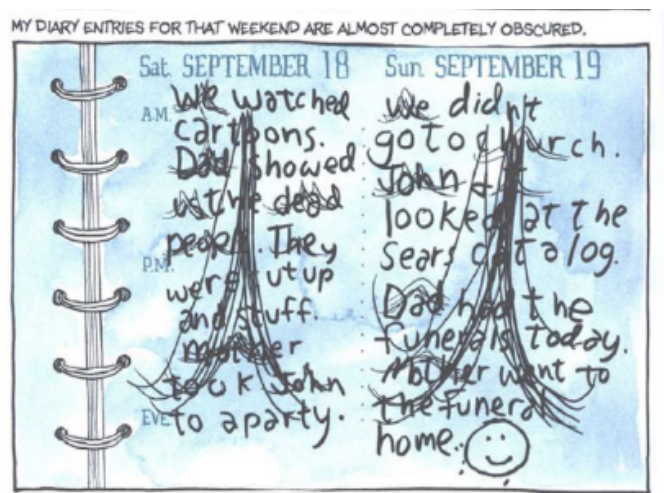 MY DIARY ENTRIES FOR THAT WEEKEND ARE ALMOST COMPLETELY OBSCURED.
Sat. SEPTEMBER 18
A.M.
We watched
cartoons.
Dad showed
us the dead
people. They
P.M.
were cut up
and stuff.
mother
took John
EVE
to a party.
Sun SEPTEMBER 19
We didn't
go to church.
John &
looked at the
Sears catalog.
Dad had the
funerals today.
Mother went to
the funeral
home.